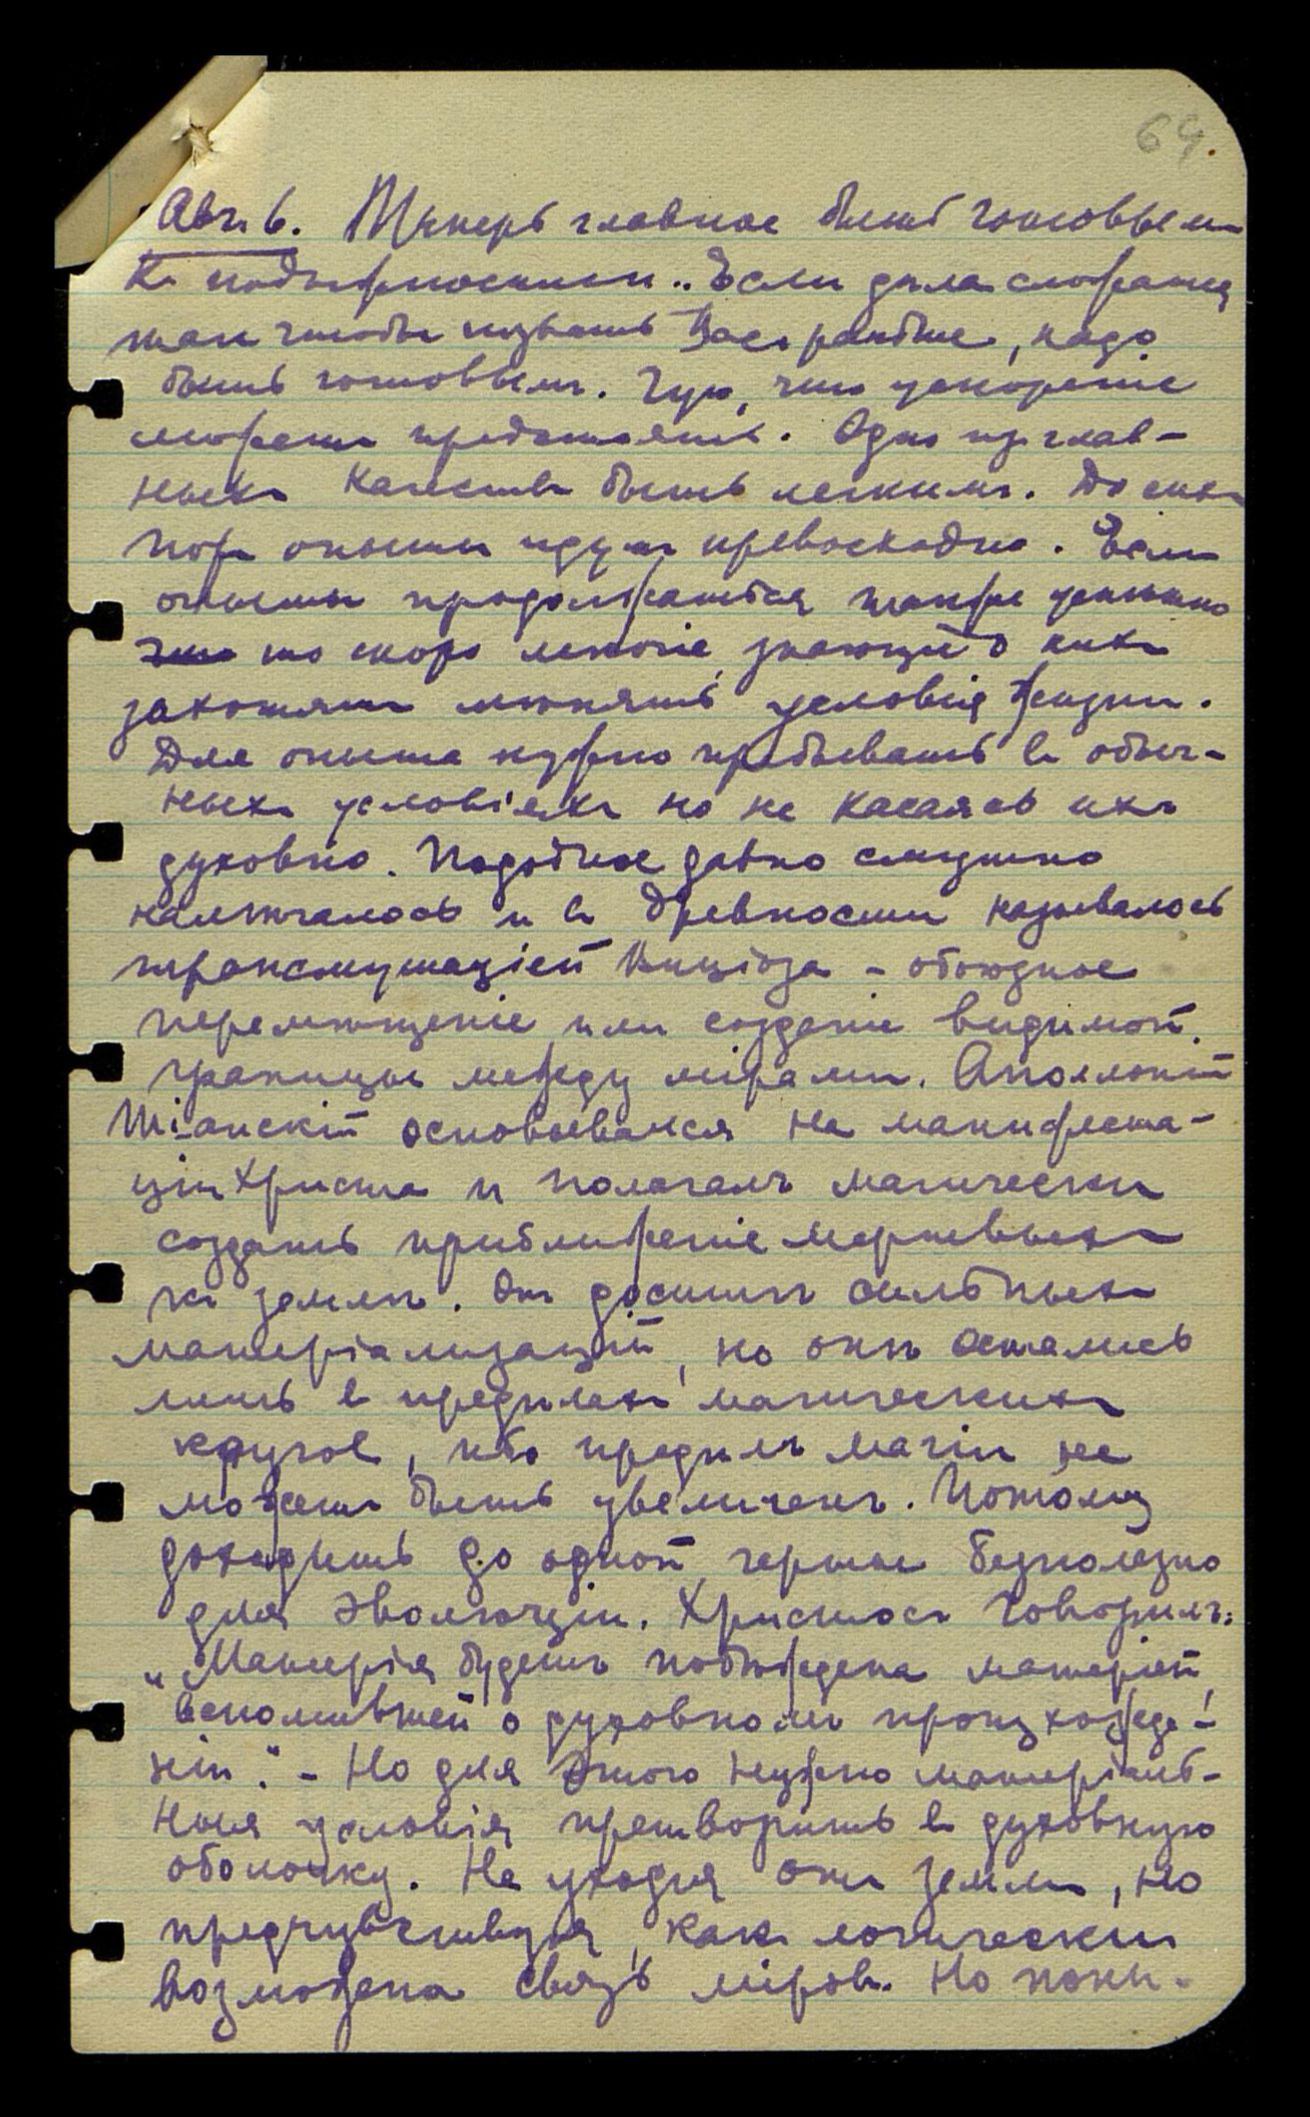 64.
Авг. 6. Теперь главное быть готовыми
къ подъ
Если дела сложатся
так чтобы позвать Васъ раньше, надо
быть готовымъ. Чую, что ускореніе
предстоять. Одно из глав-
ныхъ качествъ быть легкимъ. До сихъ
пор опыты идутъ превосходно. Если
опыты продолжатся также успешно
то скоро многіе, знающіе о них
захотят менять условія жизни.
Для опыта нужно пребывать в обыч-
ныхъ условіяхъ но не касаясь ихъ
духовно. Подобное давно смутно
намечалось и в древности называлось
трансмутаціей – обоюдное
перемещеніе или созданіе видимой
границы между мірами. Аполлоній
Тіанскій основывался на манифеста-
ціи Христа и полагалъ магически
создать приближеніе мертвыхъ
къ земле. Он достигъ сильныхъ
матеріализацій, но оне остались
лишь в пределах магическихъ
кругов, ибо пределъ магіи не
может быть увеличенъ. Потому
доходить до одной черты безполезно
для эволюціи. Христосъ говорилъ:
„Матерія будетъ побеждена матеріей,
вспомнившей о духовномъ происхожде-
ніи." – Но для этого нужно матеріаль-
ныя условія претворить в духовную
оболочку. Не уходя от земли, но
предчувствуя, как логически
возможна связь міров. Но пони-